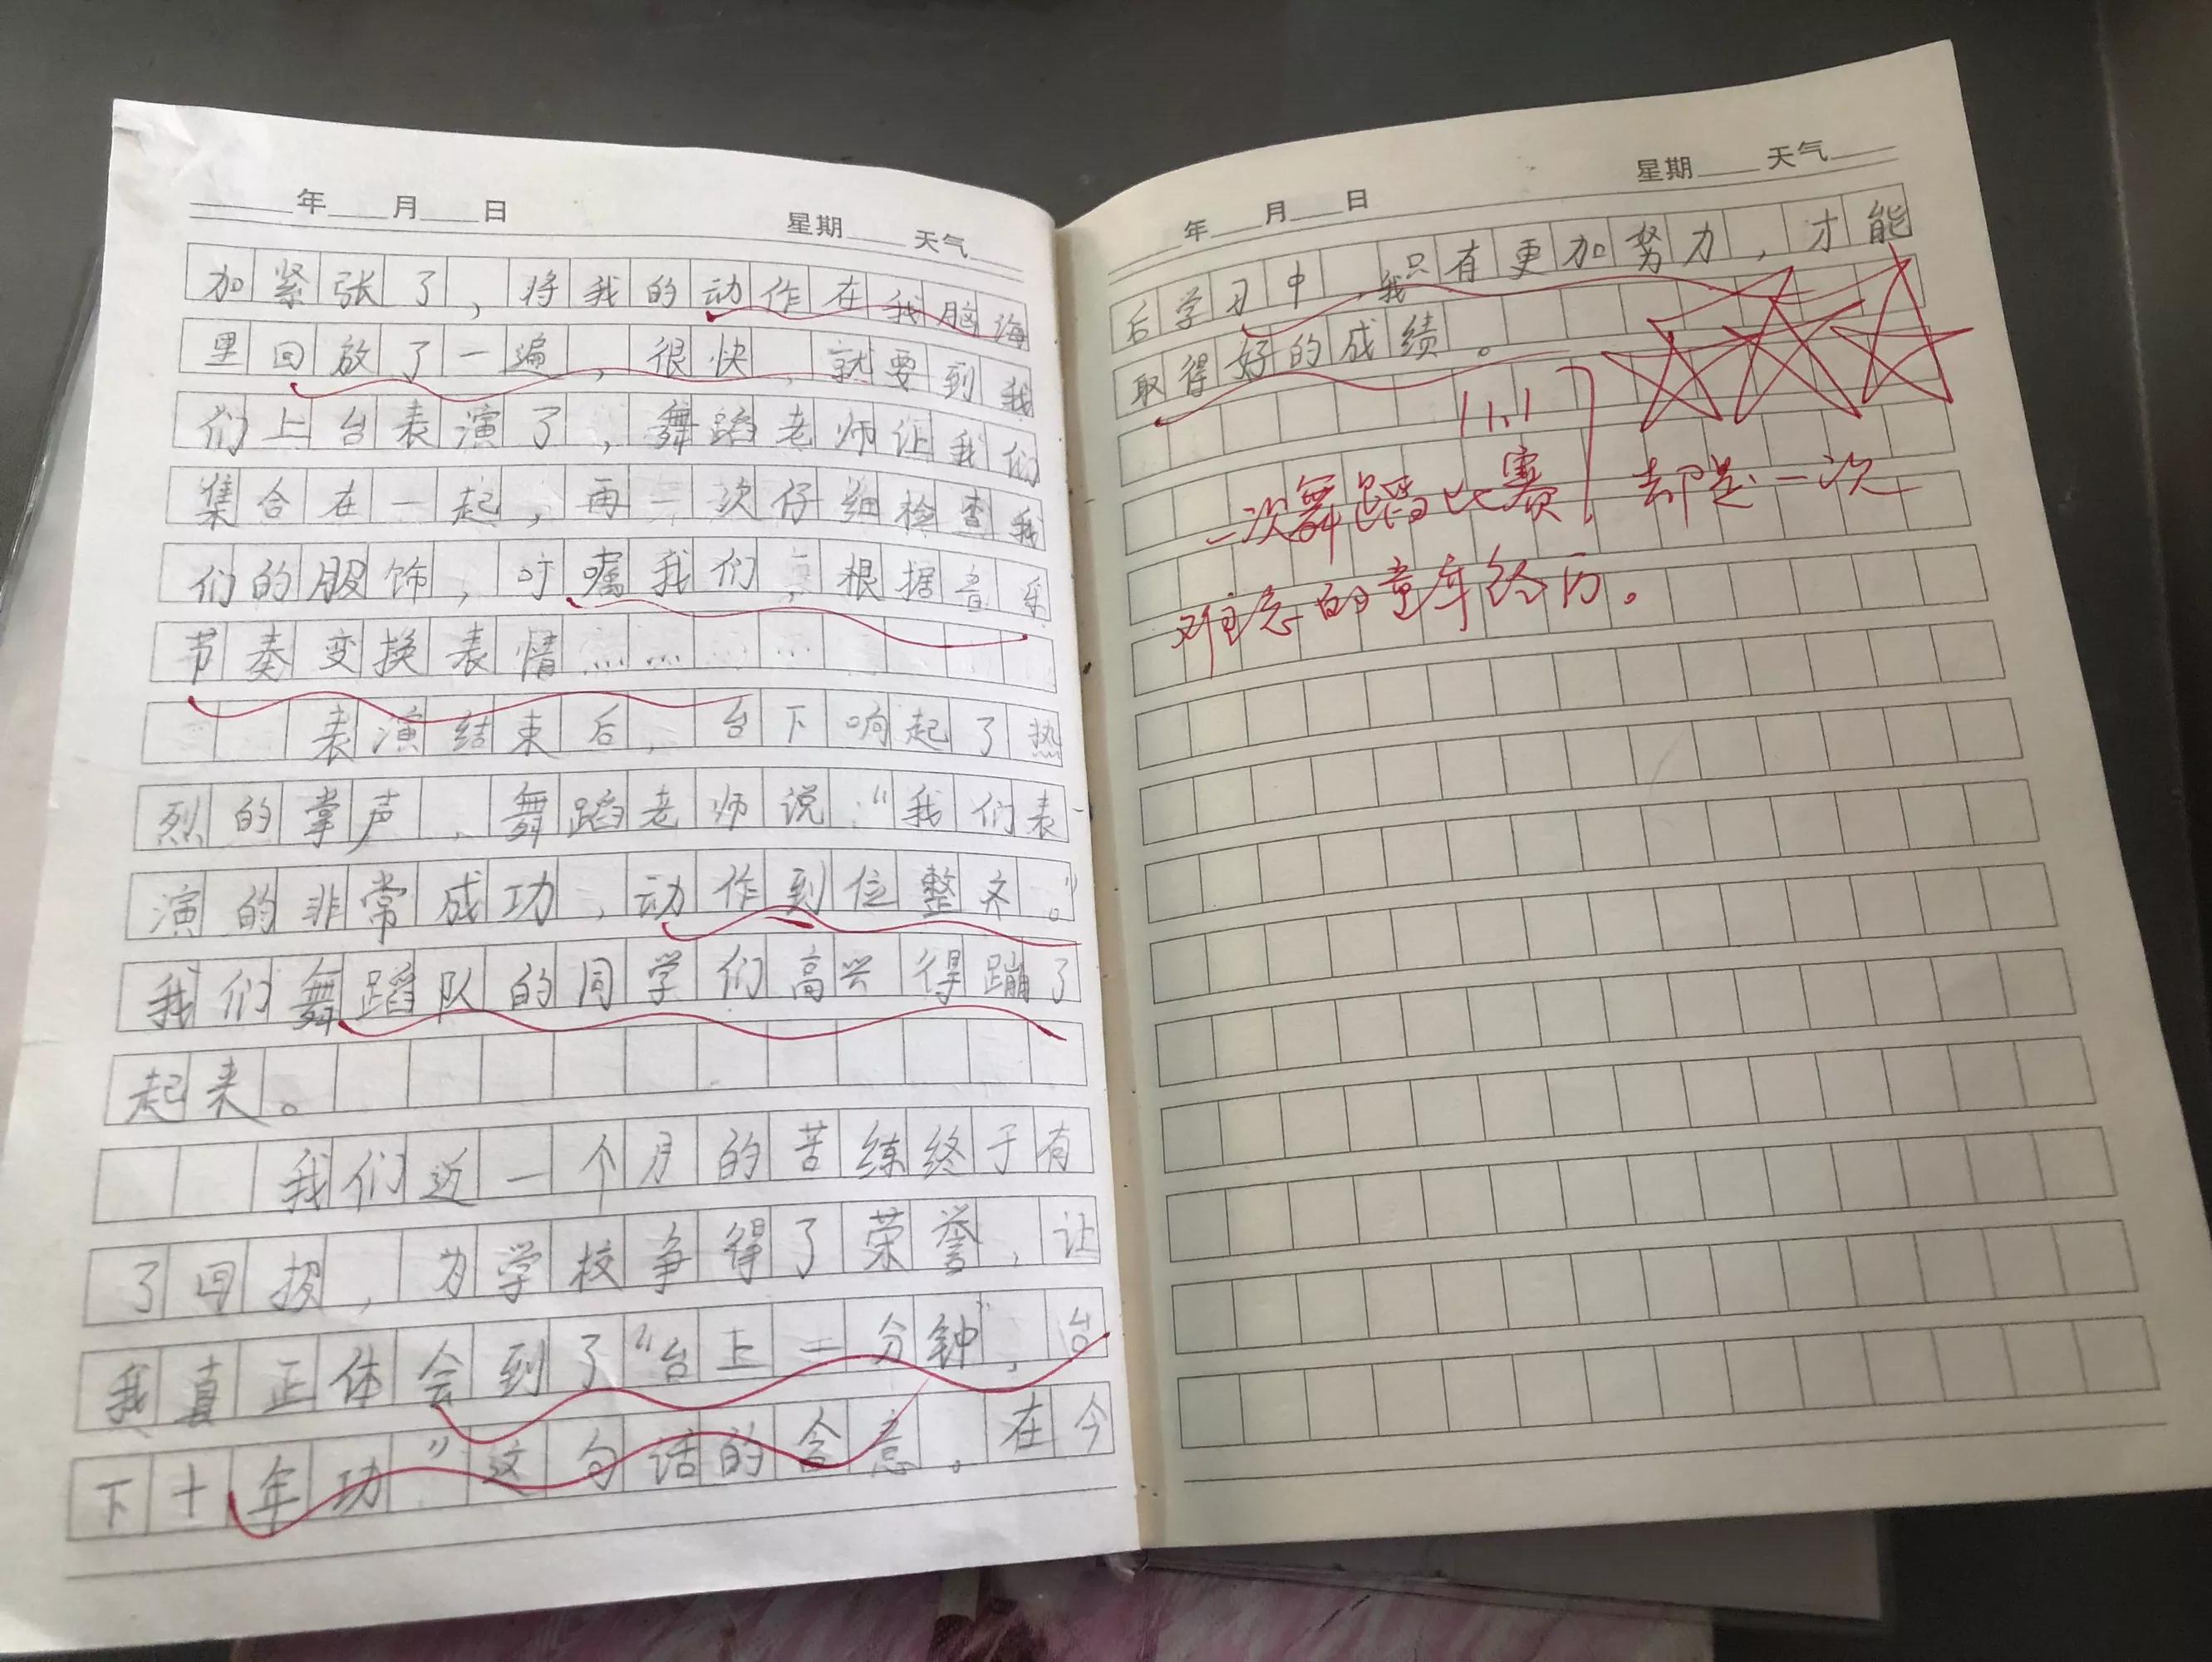 年 月 日 星期 天气
加紧张了，将我的动作在我脑海
里回放了一遍，很快，就要到我
们上台表演了，舞蹈老师让我们
集合在一起，再一次仔细检查我
们的服饰，叮嘱我们，根据音乐
节奏变换表情……
表演结束后，台下响起了热
烈的掌声，舞蹈老师说：“我们表
演的非常成功，动作到位整齐。”
我们舞蹈队的同学们高兴得蹦了
起来。
我们近一个月的苦练终于有
了回报，为学校争得了荣誉，让
我真正体会到了“台上一分钟”，台
下十年功”这句话的含意。在今
年 月 日 星期 天气
后学习中，我只有更加努力，才能
取得好的成绩。
11.1
一次舞蹈比赛，却是一次
难忘的童年经历。